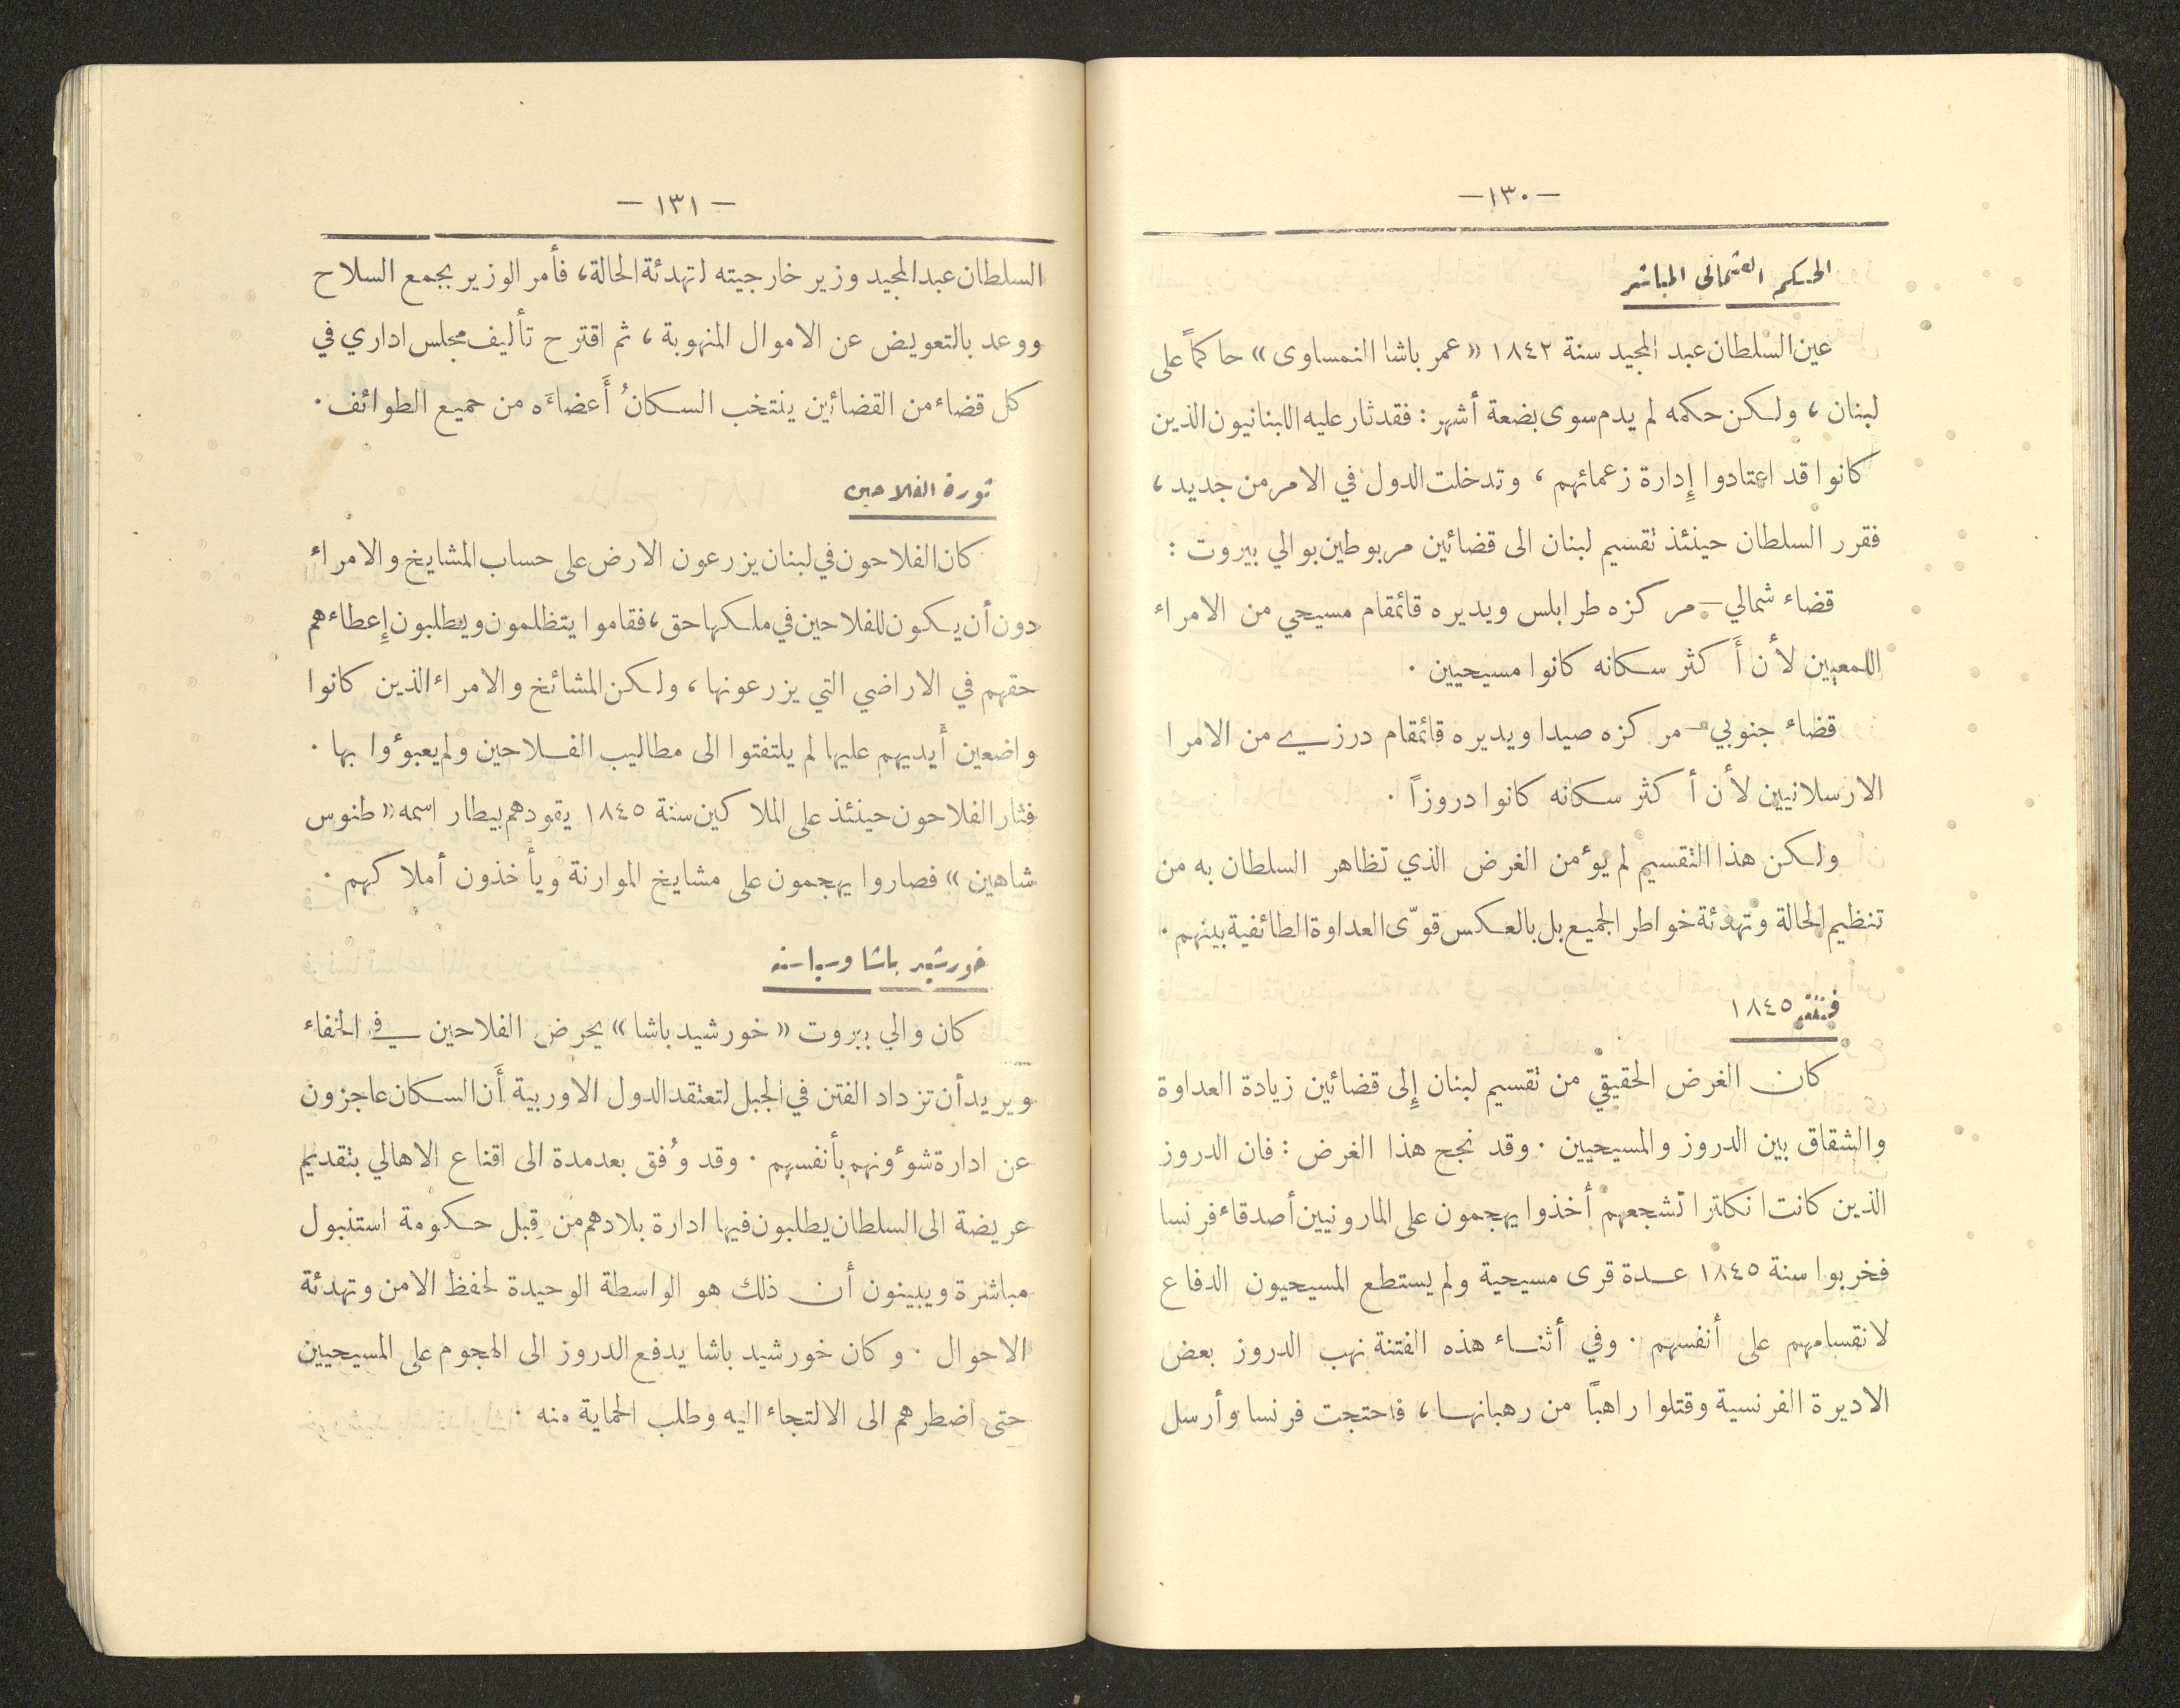 —١٣٠—
الحكم العثماني المباشر
عين السلطان عبد المجيد سنة ١٨٤٢ «عمر باشا النمساوى» حاكماً على
لبنان ، ولكن حكمه لم يدم سوى بضعة أشهر : فقد ثار عليه اللبنانيون الذين
كانوا قد اعتادوا إِدارة زعمائهم ، وتدخلت الدول في الامر من جديد ،
فقرر السلطان حينئذ تقسيم لبنان الى قضائين مربوطين بوالي بيروت :
قضاء شمالي — مركزه طرابلس ويديره قائمقام مسيحي من الامراء
اللمعيين لأن أَكثر سكانه كانوا مسيحيين .
قضاء جنوبي — مركزه صيدا ويديره قائمقام درزي من الامرا
الارسلانيين لأن أكثر سكانه كانوا دروزاً .
ولكن هذا التقسيم لم يؤمن الغرض الذي تظاهر السلطان به من
تنظيم الحالة وتهدئة خواطر الجميع بل بالعكس قوّى العداوة الطائفية بينهم .
فتنة ١٨٤٥
كان الغرض الحقيقي من تقسيم لبنان إِلى قضائين زيادة العداوة
والشقاق بين الدروز والمسيحيين . وقد نجح هذا الغرض : فان الدروز
الذين كانت انكلترا تشجعهم أخذوا يهجمون على المارونيين أصدقاء فرنسا
فخربوا سنة ١٨٤٥ عدة قرى مسيحية ولم يستطع المسيحيون الدفاع
لانقسامهم على أنفسهم . وفي أثناء هذه الفتنة نهب الدروز بعض
الاديرة الفرنسية وقتلوا راهباً من رهبانها ، فاحتجت فرنسا وأرسل
— ١٣١ —
السلطان عبد المجيد وزير خارجيته لتهدئة الحالة ، فأمر الوزير بجمع السلاح
ووعد بالتعويض عن الاموال المنهوبة ، ثم اقترح تأليف مجلس اداري في
كل قضاء من القضائين ينتخب السكانُ أَعضاءَه من جميع الطوائف .
ثورة الفلاحين
كان الفلاحون في لبنان يزرعون الارض على حساب المشايخ والامراء
دون أن يكون للفلاحين في ملكها حق ، فقاموا يتظلمون ويطلبون إِعطاءهم
حقهم في الاراضي التي يزرعونها ، ولكن المشائخ والامراء الذين كانوا
واضعين أَيديهم عليها لم يلتفتوا الى مطاليب الفلاحين ولم يعبؤوا بها .
فثار الفلاحون حينئذ على الملاكين سنة ١٨٤٥ يقودهم بيطار اسمه «طنوس
شاهين» فصاروا يهجمون على مشايخ الموارنة ويأخذون أملاكهم .
خورشيد باشا وسياسته
كان والي بيروت «خورشيد باشا» يحرض الفلاحين في الخفاء
ويريد أن تزداد الفتن في الجبل لتعتقد الدول الاوربية أَن السكان عاجزون
عن ادارة شؤونهم بأنفسهم . وقد وُفق بعد مدة الى اقناع الاهالي بتقديم
عريضة الى السلطان يطلبون فيها ادارة بلادهم من قِبل حكومة استنبول
مباشرة ويبينون أن ذلك هو الواسطة الوحيدة لحفظ الامن وتهدئة
الاحوال . وكان خورشيد باشا يدفع الدروز الى الهجوم على المسيحيين
حتى اضطرهم الى الالتجاء اليه وطلب الحماية منه .